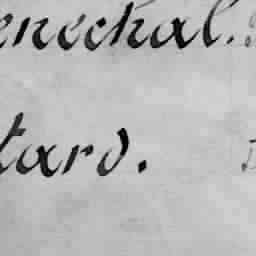 enechal.
tard.